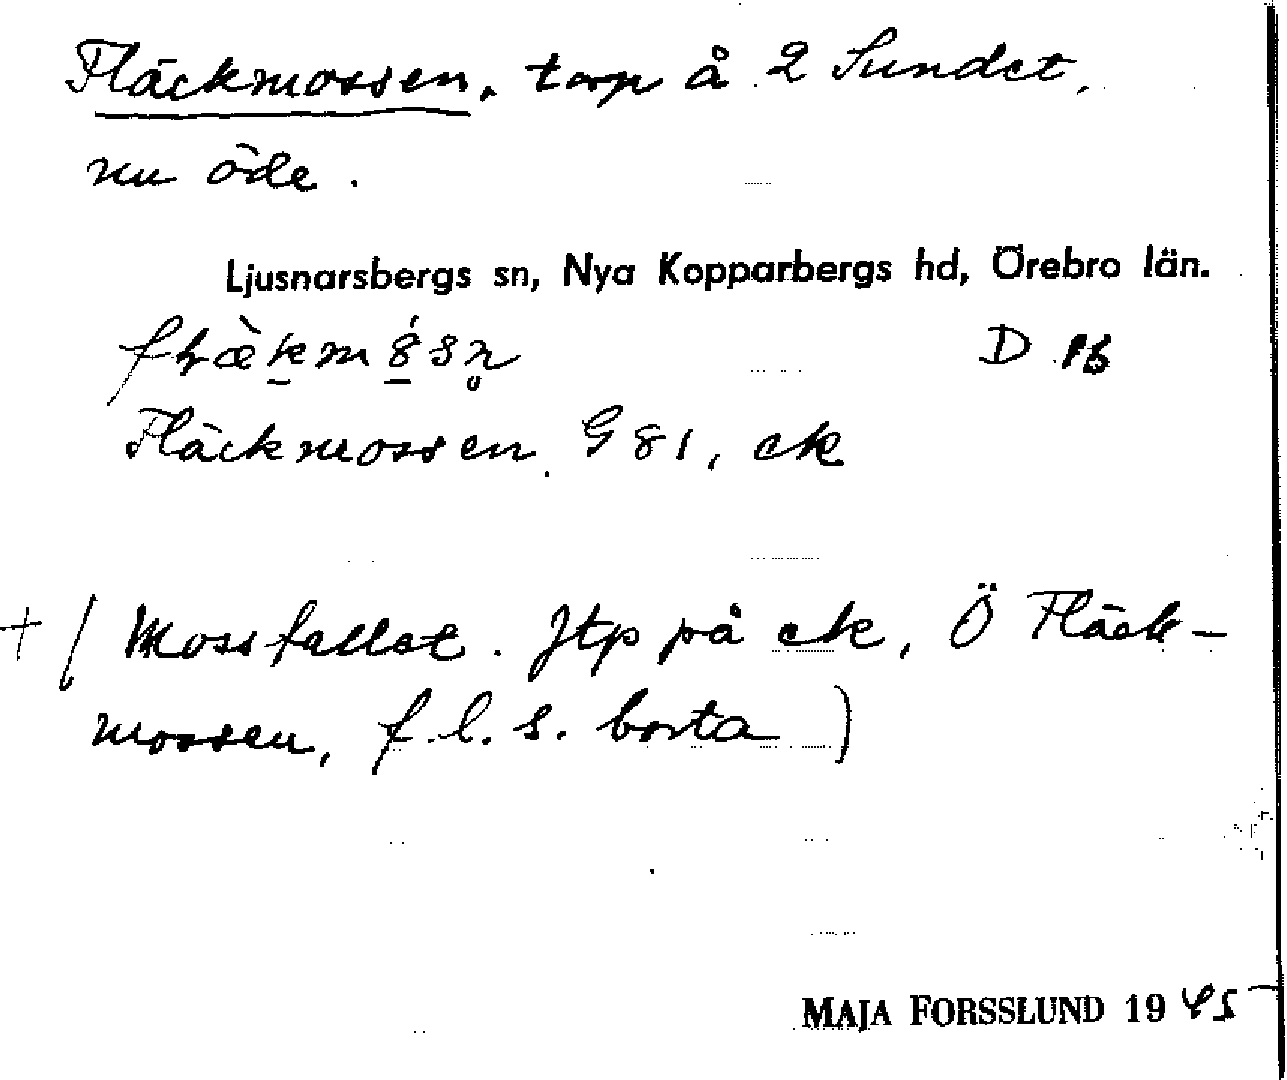 Fläckmossen, torp å 2 Sundet,
nu öde.
Ljusnarsbergs sn, Nya Kopparbergs hd, Örebro län.
D 16
Fläckmossen G 81, ek
+ ( Mossfallet. Jtp på ek, Ö Fläck-
mossen, f. l. s. borta )
MAJA FORSSLUND 1945